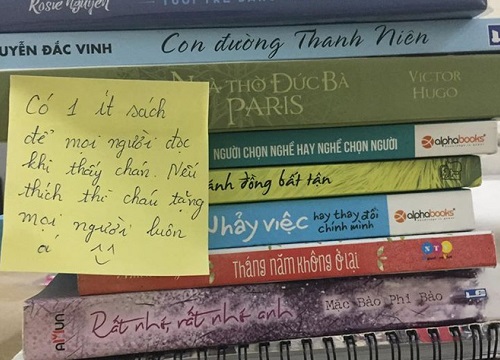 Rosie Nguyễn
UYỄN ĐẮC VINH Con đường Thanh Niên
NHÀ THỜ ĐỨC BÀ
PARIS
VICTOR
HUGO
NGƯỜI CHỌN NGHỀ HAY NGHỀ CHỌN NGƯỜI alphabooks
ánh đồng bất tận
Nhảy việc hay thay đổi
chính mình
alphabooks
Tháng năm không ở lại
Rất nhớ, rất nhớ anh Mặc Bảo Phi Bảo
Có 1 ít sách
để mọi người đọc
khi thấy chán. Nếu
thích thì cháu tặng
mọi người luôn
ạ ^^